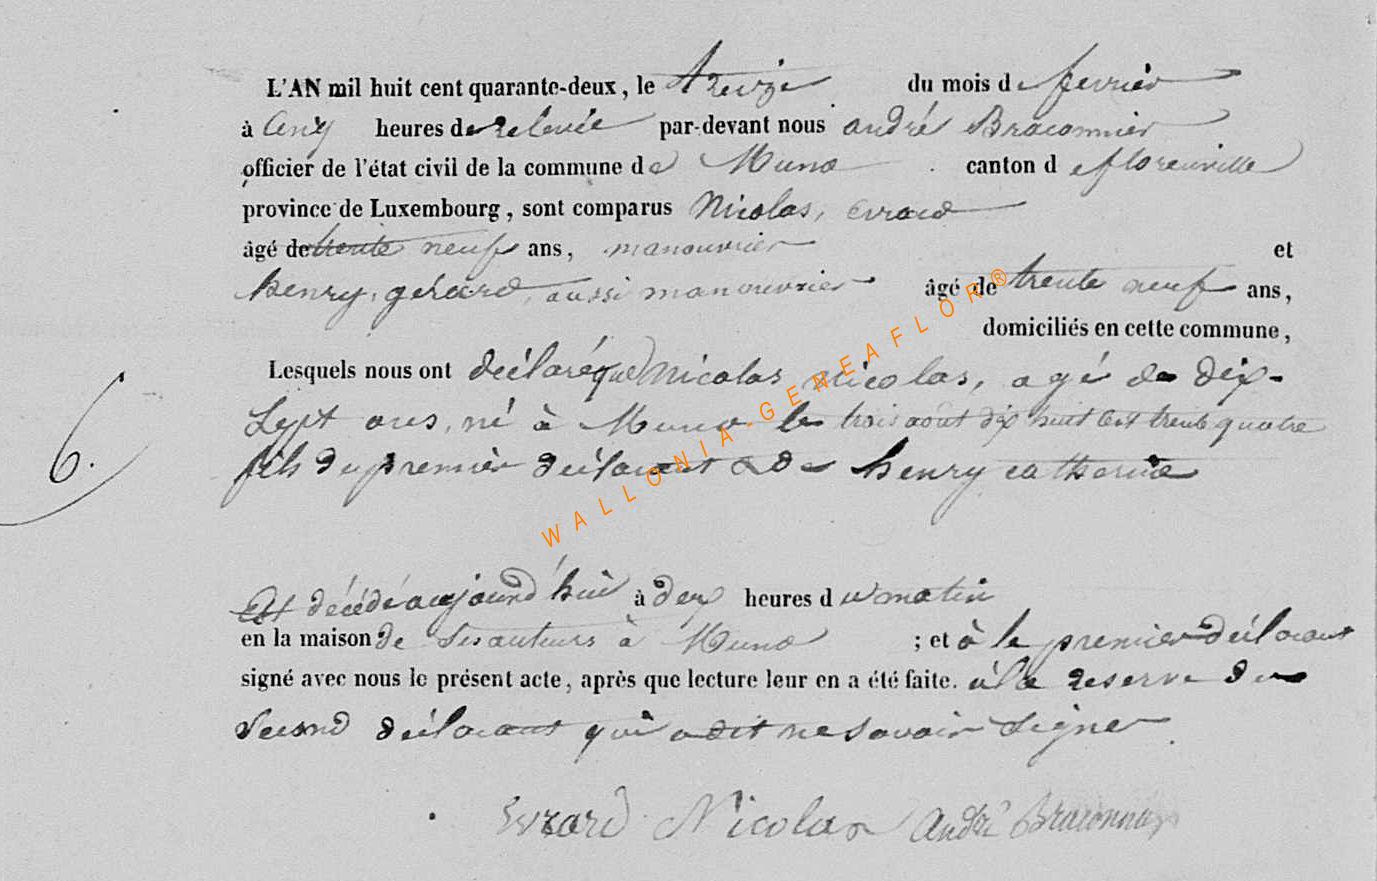 L'AN mil huit cent quarante-deux, le treize du mois de fevrier
à cinq heures de relevée par-devant nous andré Braconnier
officier de l'état civil de la commune de Muno canton de florenville
province de Luxembourg, sont comparus Nicolas, Evrard
âgé de trente neuf ans, manouvrier et
henry, gérard, aussi manouvrier âgé de trente neuf ans,
domiciliés en cette commune,
Lesquels nous ont déclaré que Nicolas Nicolas, agé de dix-
Sept ans, né à Muno le trois aout dix huit cent trente quatre
6.
fils du premier déclarant & de henry catherine
Est décédé aujourd'hui à deux heures du matin
en la maison de Ses auteurs à Muno ; et à le premier déclarant
signé avec nous le présent acte, après que lecture leur en a été faite. à la reserve du
Second déclarant qui a dit ne savoir Signer
Evrard Nicolas andré Braconnier
WALLONIA-GENEAFLOR®